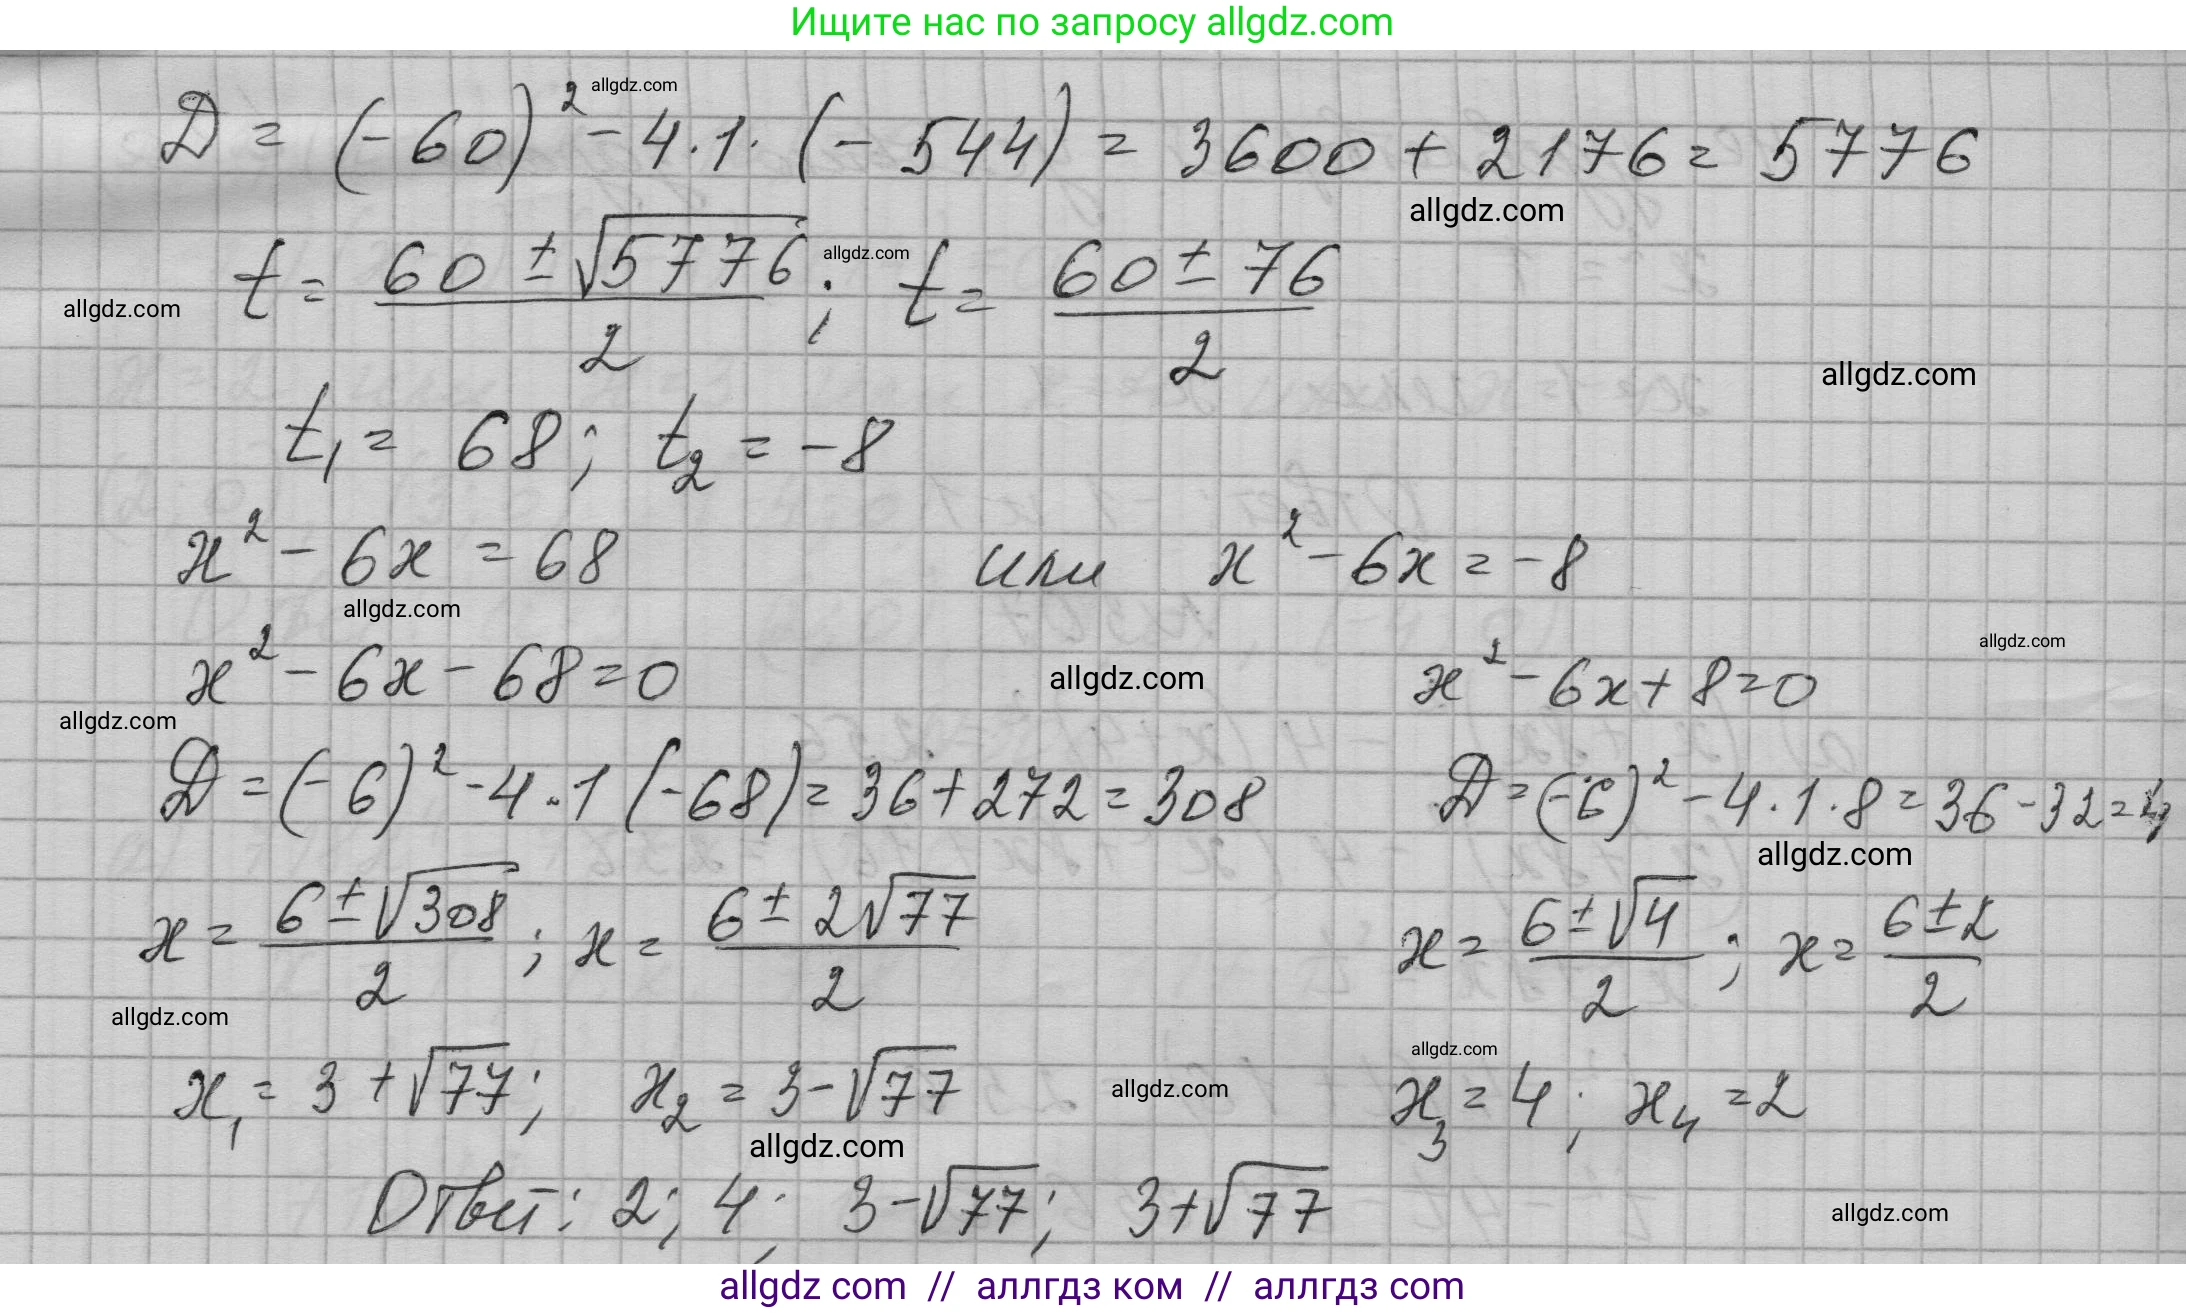 Ищите нас по запросу allgdz.com
D = (-60)² - 4·1·(-544) = 3600 + 2176 = 5776
allgdz.com
allgdz.com
t = (60 ± √5776)/2; t = (60 ± 76)/2
allgdz.com
allgdz.com
allgdz.com
t₁ = 68; t₂ = -8
x² - 6x = 68 или x² - 6x = -8
allgdz.com
allgdz.com
x² - 6x - 68 = 0 x² - 6x + 8 = 0
allgdz.com
allgdz.com
D = (-6)² - 4·1(-68) = 36 + 272 = 308 D = (-6)² - 4·1·8 = 36 - 32 = 4
allgdz.com
x = (6 ± √308)/2; x = (6 ± 2√77)/2 x = (6 ± √4)/2; x = (6 ± 2)/2
allgdz.com
allgdz.com
x₁ = 3 + √77; x₂ = 3 - √77 x₃ = 4; x₄ = 2
allgdz.com
allgdz.com
Ответ: 2; 4; 3 - √77; 3 + √77
allgdz.com
allgdz com // аллгдз ком // аллгдз com